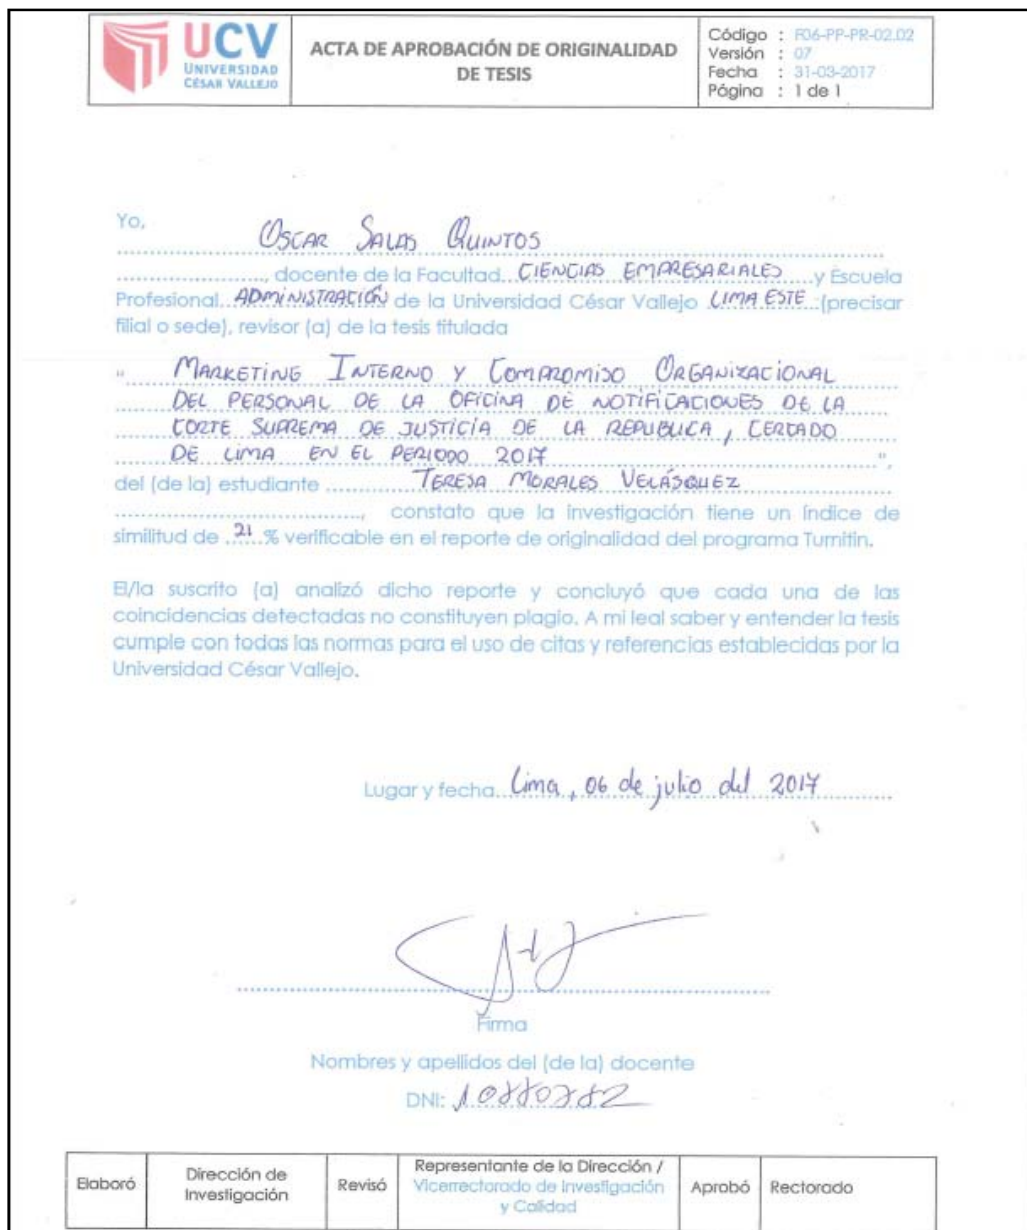 UCV
UNIVERSIDAD
CÉSAR VALLEJO
ACTA DE APROBACIÓN DE ORIGINALIDAD
DE TESIS
Código : F06-PP-PR-02.02
Versión : 07
Fecha : 31-03-2017
Página : 1 de 1
Yo,
OSCAR SALAS QUINTOS
, docente de la Facultad CIENCIAS EMPRESARIALES y Escuela
Profesional ADMINISTRACIÓN de la Universidad César Vallejo LIMA ESTE (precisar
filial o sede), revisor (a) de la tesis titulada
" MARKETING INTERNO Y COMPROMISO ORGANIZACIONAL
DEL PERSONAL DE LA OFICINA DE NOTIFICACIONES DE LA
CORTE SUPREMA DE JUSTICIA DE LA REPUBLICA, CERCADO
DE LIMA EN EL PERIODO 2017 ",
del (de la) estudiante TERESA MORALES VELÁSQUEZ
, constato que la investigación tiene un índice de
similitud de 21 % verificable en el reporte de originalidad del programa Turnitin.
El/la suscrito (a) analizó dicho reporte y concluyó que cada una de las
coincidencias detectadas no constituyen plagio. A mi leal saber y entender la tesis
cumple con todas las normas para el uso de citas y referencias establecidas por la
Universidad César Vallejo.
Lugar y fecha Lima, 06 de julio del 2017
Firma
Nombres y apellidos del (de la) docente
DNI:
Elaboró
Dirección de
Investigación
Revisó
Representante de la Dirección /
Vicerrectorado de Investigación
y Calidad
Aprobó
Rectorado